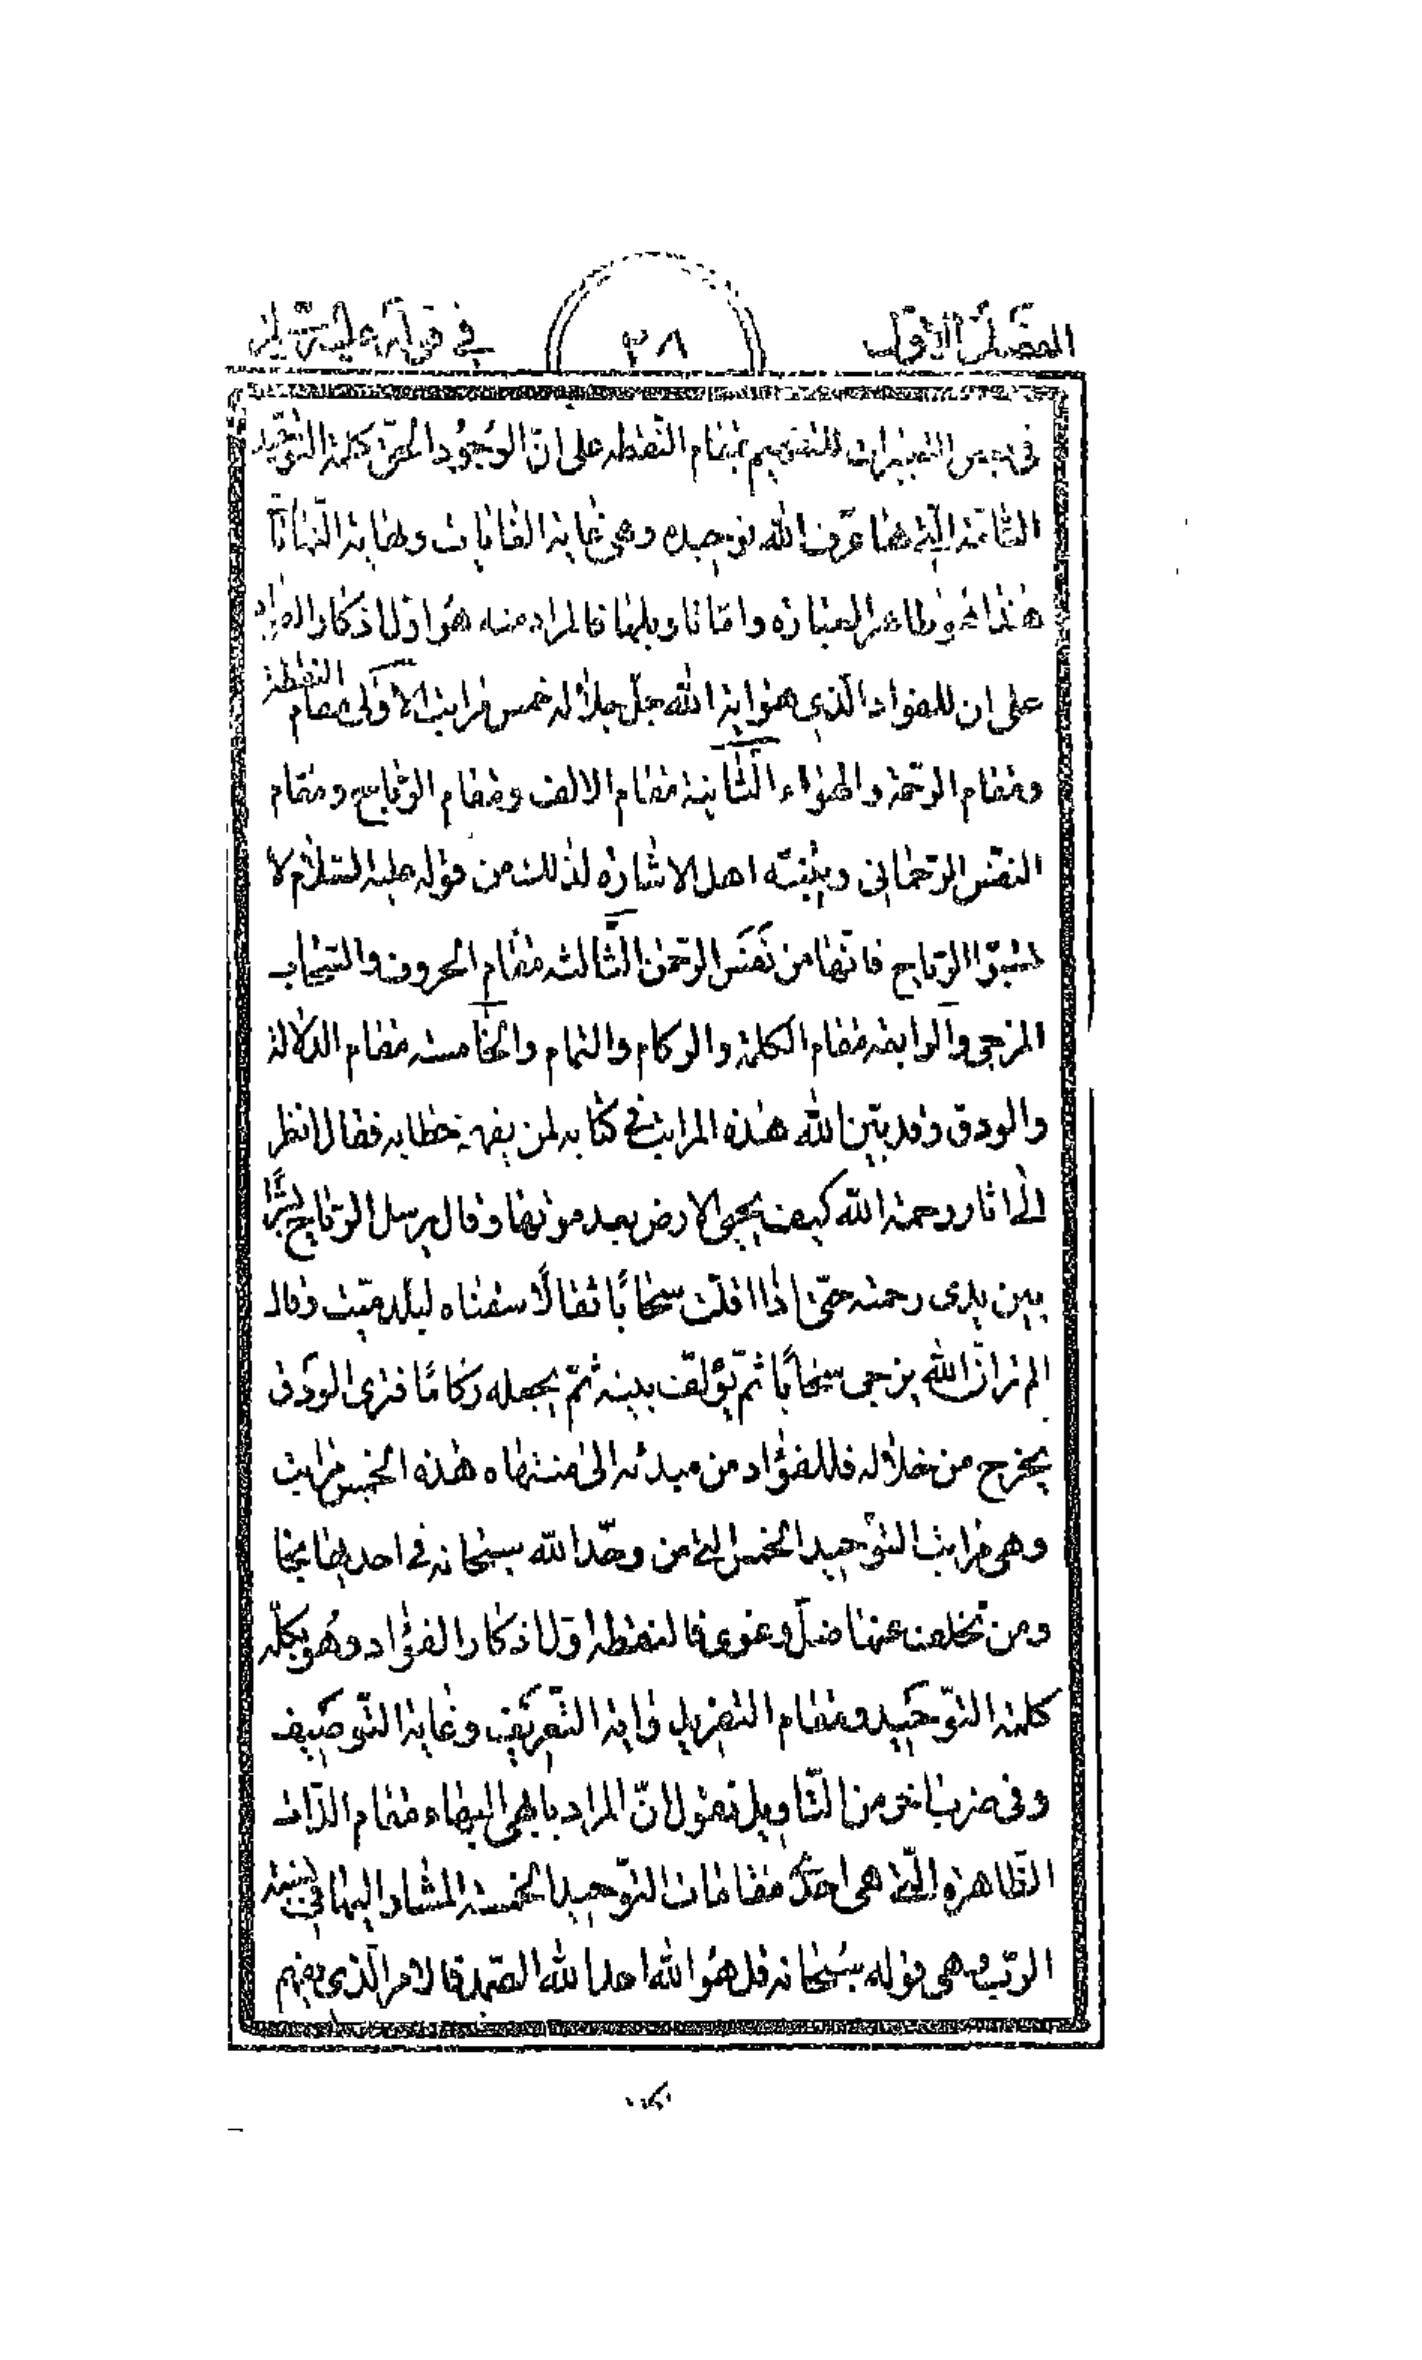 الفصل الاول
٣٨
في قوله عليه السلام
في بعض التعبيرات للتفهيم بمقام النقطه على انّ الوجُود الحقّ كلمة التوحيد
التامّة الّتي هنا عرف الله توحيده وهي غاية الغايات ونهاية النهايات
هذا نحو ظاهر العبارة وامّا تاويلها فالمراد منه هُو اوّل اذكار الفؤاد
على ان للفؤاد الّذي هو اية الله جلّ جلاله خمس مراتب الاولى مقام النقطة
ومقام الرحمة والهواء الثّانية مقام الالف ومقام الرياح ومقام
النفس الرحمانى وبيّنته اهل الاشارة لذلك من قوله عليه السلام لا
تسبّوا الرياح فانّها من نَفَس الرحمن الثّالثه مقام الحروف والسحاب
المزجى والرابعة مقام الكلمة والركام والتمام والخامسه مقام الدلالة
والودق وقد بيّن الله هذه المراتب في كتابه لمن يفهم خطابه فقال انظر
الى اثار رحمة الله كيف يحيى الارض بعد موتها وقال يرسل الرياح بشرًا
بين يدى رحمته حتّى اذا اقلّت سحابًا ثقالًا سقناه لبلد ميّت وقال
الم تر انّ الله يزجى سحابًا ثمّ يؤلّف بينه ثمّ يجعله ركامًا فترى الودق
يخرج من خلاله فللفؤاد من مبدئه الى منتهاه هذه الخمس مراتب
وهى مراتب التوحيد الخمس التي من وحّد الله سبحانه في احديها نجا
ومن تخلف عنها ضلّ وغوى فالنقطه اوّل اذكار الفؤاد وهُو بكلّه
كلمة التّوحيد ومقام التفريد واية التّعريف وغاية التّوصيف
وفى ضرب اخر من التّاويل نقول انّ المراد بابهى البهاء مقام الذّات
الظاهرة الّتي هى احدى مقامات التّوحيد الخمسة المشار اليها في نسبة
الربّ وهى قوله سبحانه قل هُو الله احد الله الصّمد فالامر الّذى يفهم